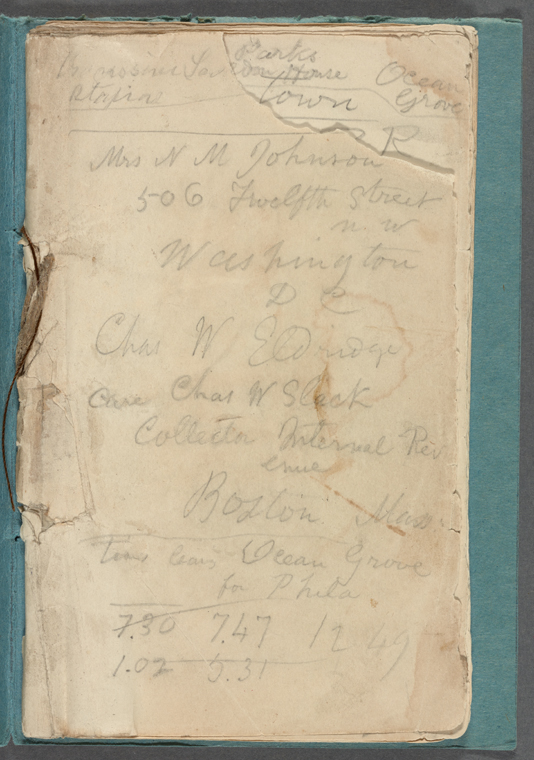 Parks
House Ocean
Town Grove
R
Mrs N M Johnson
506 Twelfth Street
n. w
Washington
D C
Chas W Eldridge
care Chas W Slack
Collector Internal Rev
enue
Boston Mass.
Ocean Grove
for Phila
7.30 7.47 12 49
1.02 5.31